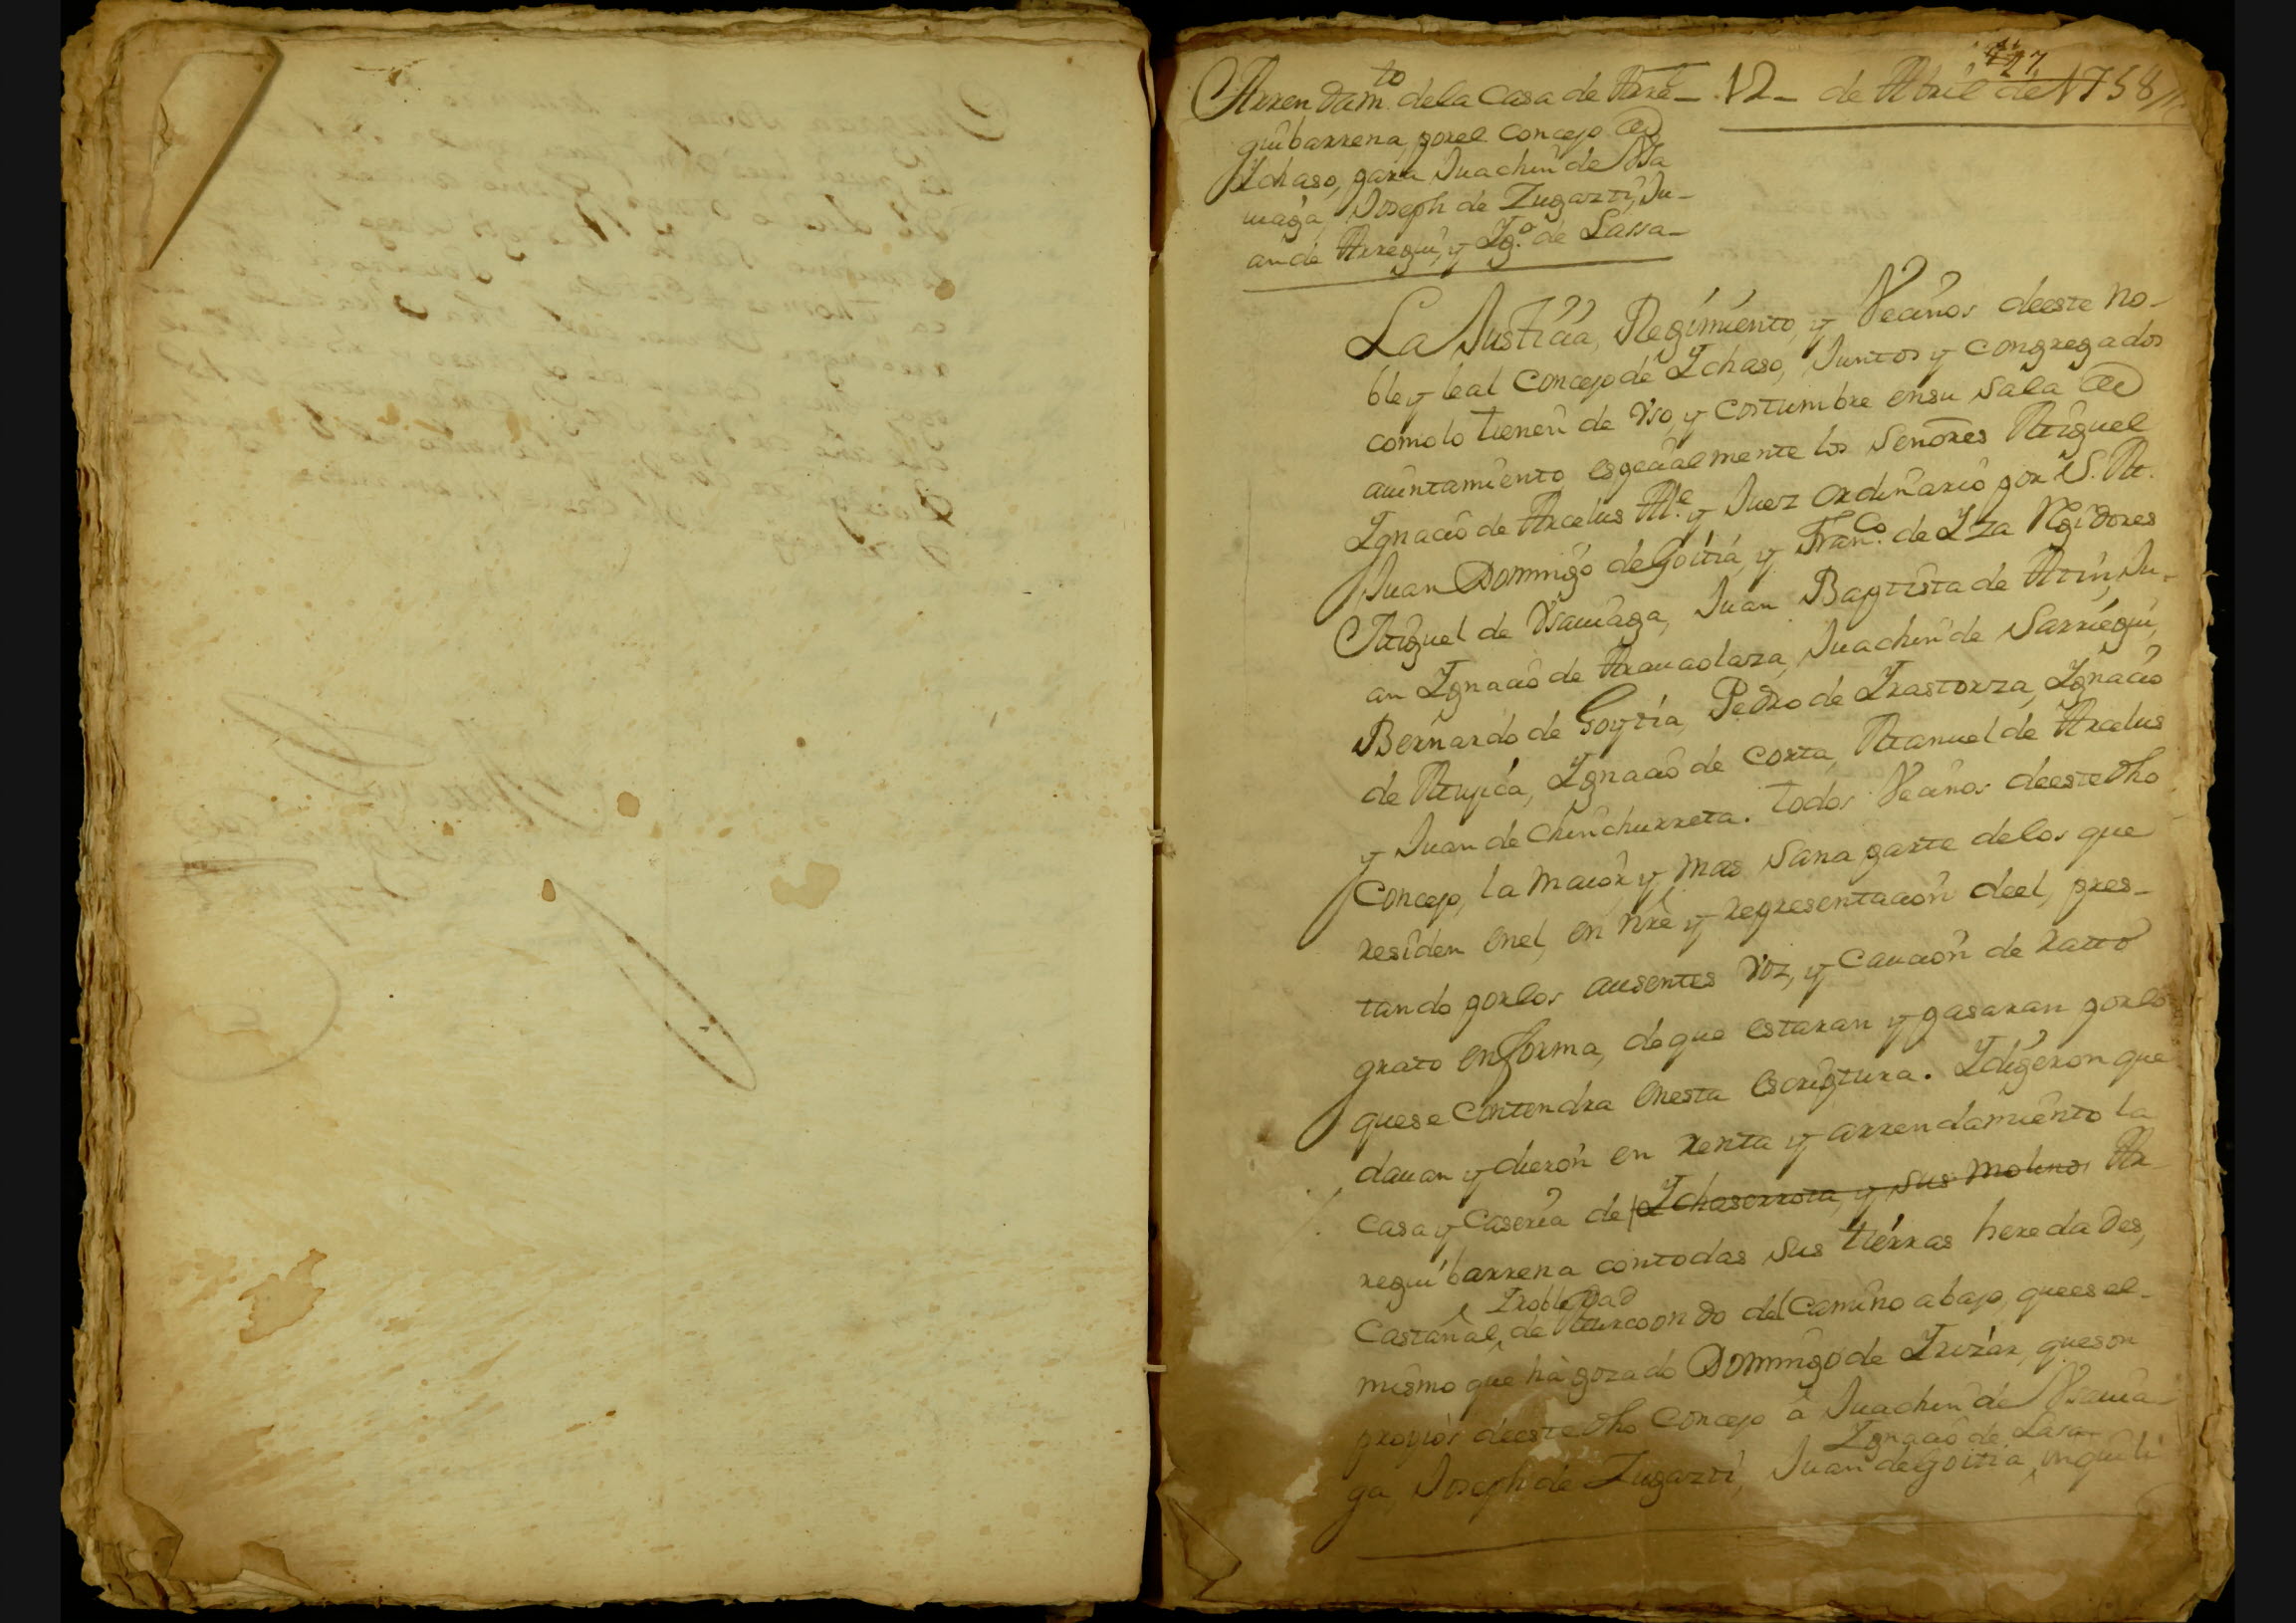 127
Arrendam.to dela Casa de Arre_ 12_ de Abril de 1758
guibarrena, por el Concejo de
Ichaso, para Juachin de Vsa
uiaga, Joseph de Zugazti, Ju_
an de Arregui, y Ig.o de Lassa_
La Justicia, Regimiento, y Vecinos deeste No_
ble y leal Concejo de Ichaso, Juntos y congregados
como lo tienen de Vso, y costumbre ensu Sala de
auintamiento, especialmente los Señores Miguel
Ignacio de Arcelus Al.e y Juez ordinario por S. M.
Juan Domingo de Goitia, y Fran.co de Iza Regidores
Miguel de Vsauiaga, Juan Baptista de Atin, Ju_
an Ignacio de Arauaolaza, Juachin de Sarriegui,
Bernardo de Goytia, Pedro de Irastorza, Ignacio
de Mujica, Ignacio de Corta, Manuel de Arcelus
y Juan de Chinchurreta. todos Vecinos deeste dho
Concejo, la maior y mas Sana parte delos que
residen enel, en nre y representacion deel, pres_
tando porlos ausentes Voz, y Caucion de ratto
grato enforma, deque estaran y pasaran porlo
quese Contendra enesta escriptura. I digeron que
dauan y dieron en renta y arrendamiento la
Casa y Caseria de Ichasorrota, y sus molinos Ar_
reguibarrena contodas sus tierras heredades,
Irobledad
Castañal, de Murcoondo del Camino abajo, quees el_
mismo que hà gozado Domingo de Irizar, queson
propios deeste dho Concejo à Juachin de Vsauia_
Ignacio de Lasa_
ga, Joseph de Zugazti, Juan de Goitia, inquili